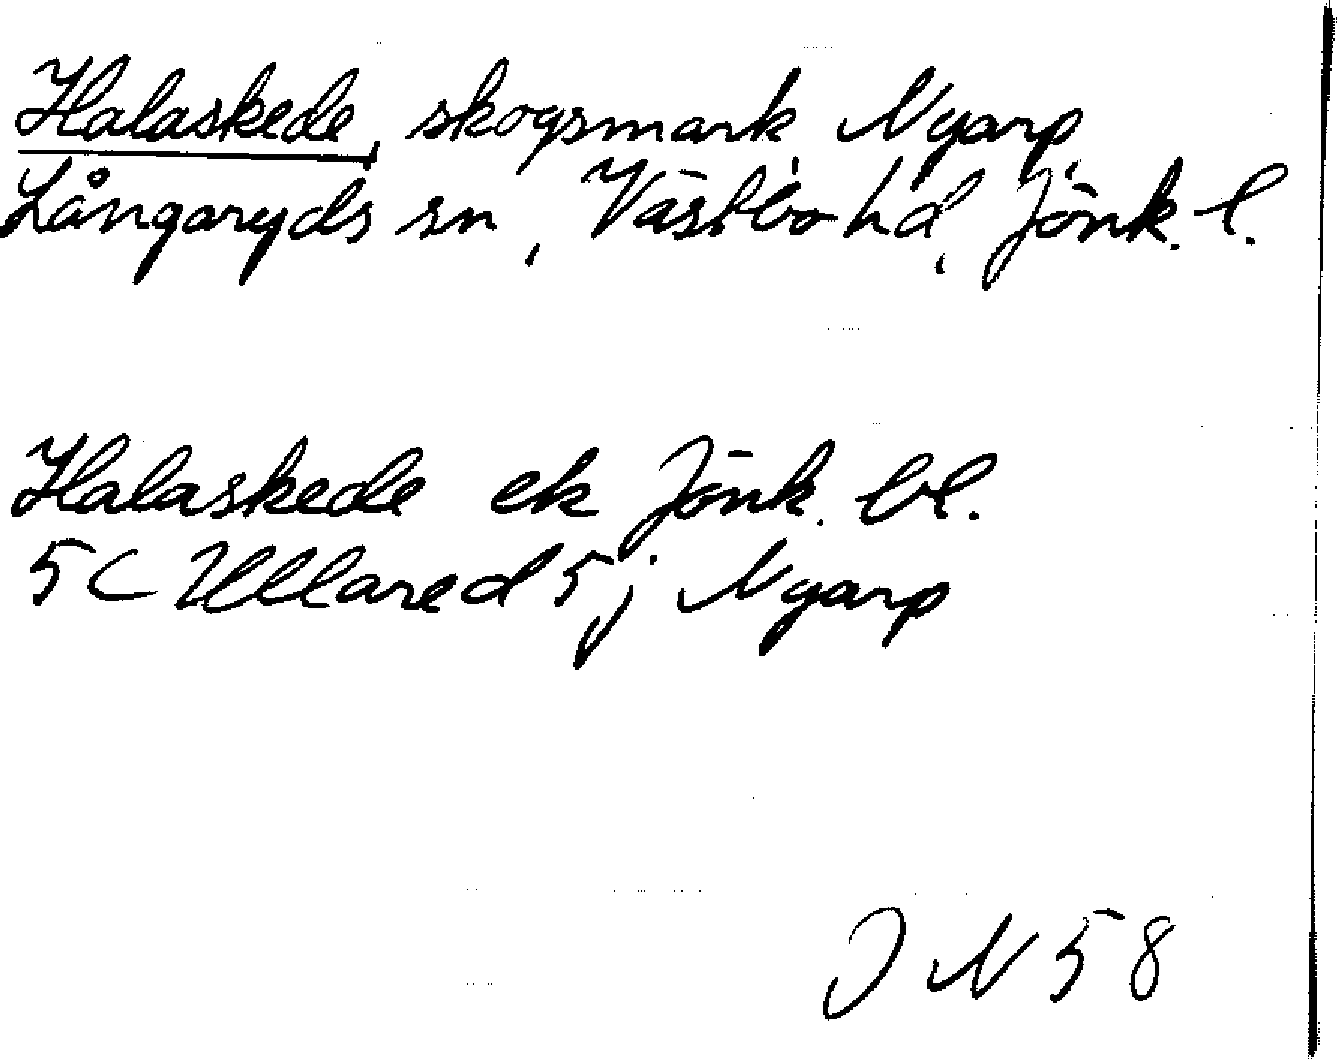 Halaskede, skogsmark Nyarp,
Långaryds sn, Västbo hd, Jönk. l.
Halaskede ek Jönk. bl.
5C Ullared 5j Nyarp
J N 58